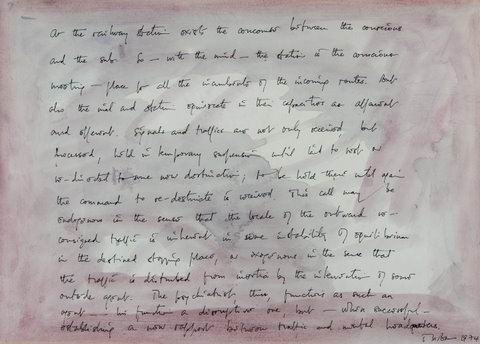 At the railway station exists the concourse between the conscious
and the sub. So – with the mind – the station is the conscious
meeting – place for all the incumbents of the incoming routes. But
also the mind and station equivocate in their capacities as afferent
and efferent. Signals and traffic are not only received but
processed, held in temporary suspension until led to rest or
re-directed to some new destination; to be held there until again
the command to re-destinate is received. This call may be
endogenous in the sense that the locale of the outward re-
consigned traffic is inherent in some instability of equilibrium
in the destined stopping place, or exogenous in the sense that
the traffic is disturbed from inertia by the intervention of some
outside agent. The psychiatrist, thus, functions as such an
agent – his function a disruptive one, but – when successful –
establishing a new rapport between traffic and mental headquarters.
1974